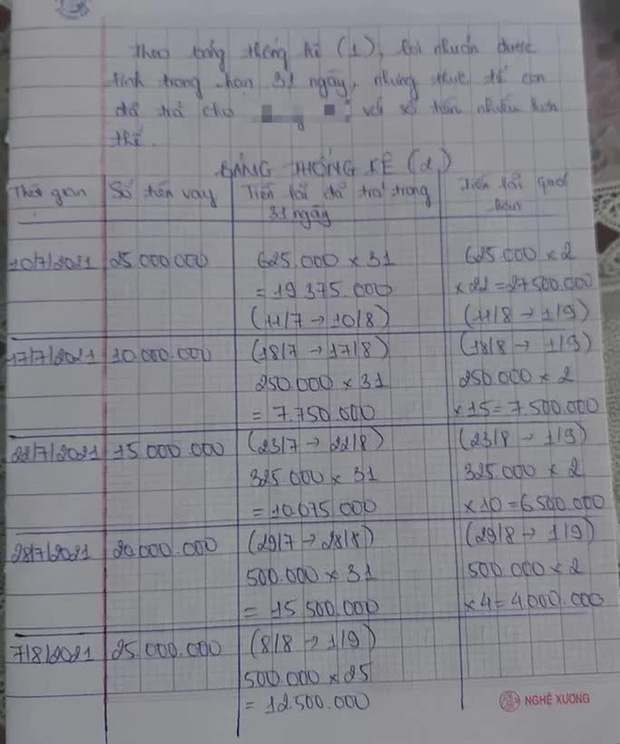 Theo bảng thống kê (1), lợi nhuận được
tính trong hạn 31 ngày, nhưng thực tế con
đã trả cho với số tiền nhiều hơn
thế.
BẢNG THỐNG KÊ (2)
Thời gian Số tiền vay Tiền lãi đã trả trong Tiền lãi quá
31 ngày hạn
10/7/2021 25.000.000 625.000 x 31 625.000 x 2
= 19.375.000 x 22 = 27.500.000
(11/7 → 10/8) (11/8 → 1/9)
17/7/2021 10.000.000 (18/7 → 17/8) (18/8 → 1/9)
250.000 x 31 250.000 x 2
= 7.750.000 x 15 = 7.500.000
22/7/2021 15.000.000 (23/7 → 22/8) (23/8 → 1/9)
325.000 x 31 325.000 x 2
= 10.075.000 x 10 = 6.500.000
28/7/2021 20.000.000 (29/7 → 28/8) (29/8 → 1/9)
500.000 x 31 500.000 x 2
= 15.500.000 x 4 = 4.000.000
7/8/2021 25.000.000 (8/8 → 1/9)
500.000 x 25
= 12.500.000
NGHÊ XƯƠNG